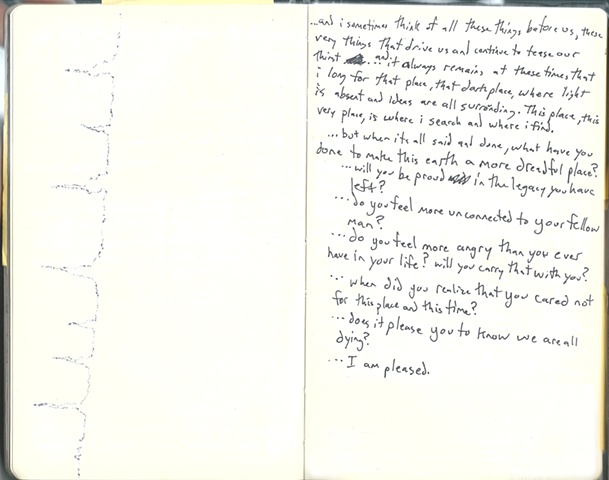 ...and i sometimes think of all these things before us, these
very things that drive us and continue to tease our
thirst ... and it always remains at these times that
i long for that place, that dark place, where light
is absent and ideas are all surrounding. This place, this
very place, is where i search and where i find.
...but when its all said and done, what have you
done to make this earth a more dreadful place?
...will you be proud in the legacy you have
left?
...do you feel more unconnected to your fellow
man?
...do you feel more angry than you ever
have in your life? will you carry that with you?
... when did you realize that you cared not
for this place and this time?
...does it please you to know we are all
dying?
... I am pleased.